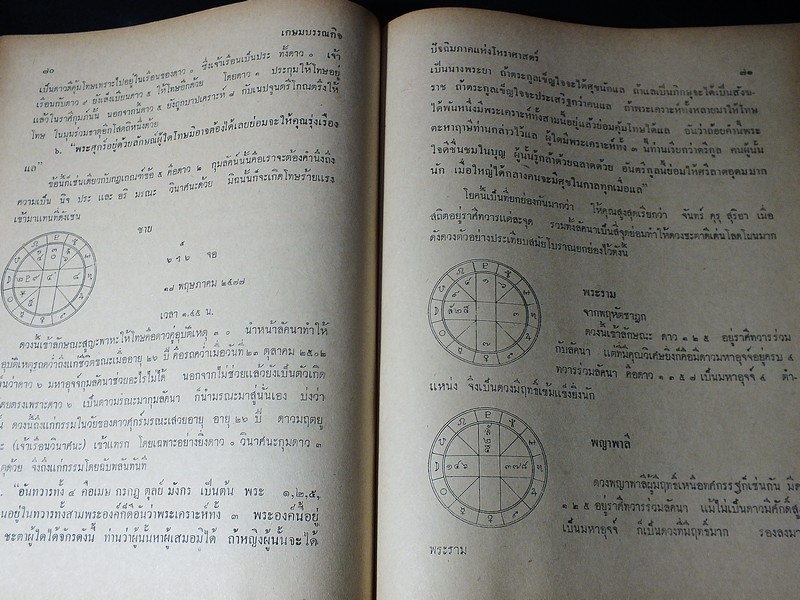 ๘๐ เกษมบรรณกิจ
เป็นดาวดีคุ้มโทษเพราะไปอยู่ในเรือนของดาว ๑ ซึ่งเจ้าเรือนเป็นประ ทั้งดาว ๑ เจ้า
เรือนกับดาว ๙ ยังเล็งเบียนดาว ๕ ให้โทษอีกด้วย โดยดาว ๓ ประกุมให้โทษอยู่
แล้วในราศีกุมภ์นั้น นอกจากนั้นดาว ๕ ยังถูกบาปเคราะห์ ๘ กับเนปจูนตรีโกณตรึงให้
โทษ ในมุมร่วมธาตุอีกโสดถึงหนึ่งด้วย
๖. "พระศุกร์อยู่ด้วยลักษณ์ผู้ใดโทษมีอาจต้องได้เลยย่อมจะให้คุณรุ่งเรือง
แล"
ข้อนี้ก็เช่นเดียวกับกฎเกณฑ์ข้อ ๕ คือดาว ๖ กุมลัคน์นั้นคือเราจะต้องคำนึงถึง
ความเป็น นิจ ประ และ อริ มรณะ วินาศน์ะด้วย มิฉะนั้นก็จะเกิดโทษร้ายแรง
เข้ามาแทนที่ดังเช่น
ชาย
๕
๖ ๓ ๖ จอ
๑๗ พฤษภาคม ๒๔๗๗
เวลา ๑.๔๕ น.
ดวงนี้เข้าลักษณะสูญะพาหะให้โทษคือดาวคู่อุบัติเหตุ ๓ ๐ นำหน้าลัคนาทำให้
อุบัติเหตุรถคว่ำถึงแก่ชีวิตขณะเมื่ออายุ ๒๖ ปี คือรถคว่ำเมื่อวันที่ ๒๓ ตุลาคม ๒๕๐๒
ห็นว่าดาว ๖ มหาอุจจ์กุมลัคนาช่วยอะไรไม่ได้ นอกจากไม่ช่วยแล้วยังเป็นตัวเกิด
ดยตรงเพราะดาว ๖ เป็นดาวมรณะมากุมลัคนา ก็นำมรณะมาสู่นั่นเอง บ่งว่า
ดวงนี้ถึงแก่กรรมในวัยของดาวศุกร์มรณะเสวยอายุ อายุ ๒๖ ปี ดาวมฤตยู
ะ (เจ้าเรือนวินาศนะ) เข้าแทรก โดยเฉพาะอย่างยิ่งดาว ๐ วินาศน์ะกุมดาว ๓
ตุด้วย จึงถึงแก่กรรมโดยฉับพลันทันที
"อันทวารทั้ง ๔ คือเมษ กรกฎ ตุลย์ มังกร เป็นต้น พระ ๑,๒,๕,
นอยู่ในทวารทั้งสามพระองค์ก็ดีอันว่าพระเคราะห์ทั้ง ๓ พระองค์นี้อยู่
ชะตาผู้ใดได้จักรดังนี้ ท่านว่าผู้นั้นหาผู้เสมอมิได้ ถ้าหญิงผู้นั้นจะได้
ปัจฉิมภาคแห่งโหราศาสตร์ ๘๑
เป็นนางพระยา ถ้าตระกูลเจ็ญใจจะได้สุขนักแล ถ้าแลเป็นภิกษุจะได้เป็นสังฆ-
ราช ถ้าตระกูลเข็ญใจจะประเสริฐกว่าคนแล ถ้าพระเคราะห์ทั้งหลายมาให้โทษ
ได้พันหนึ่งมีพระเคราะห์ทั้งสามนี้อยู่แล้วย่อมคุ้มโทษได้แล อันว่าถ้อยคำนี้พระ
ตะหาฤาษีท่านกล่าวไว้แล ผู้ใดมีพระเคราะห์ทั้ง ๓ นี้ท่านเรียกว่าตรีกูล คนผู้นั้น
ใจดีชื่นชมในบุญ ผู้นั้นรู้กลถ้วยฉลาดด้วย อันตรีกูลนี้ย่อมให้ศรีลาคอุดมมาก
นัก เมื่อใหญ่ได้กลางคนจะมีสุขในกาลทุกเมื่อแล"
โยคนี้เป็นที่ยกย่องกันมากว่า ให้คุณสูงสุดเรียกว่า จันทร์ คุรุ สุริยา เมื่อ
สถิตอยู่ราศีทวารแต่ละจุด รวมทั้งลัคนาเป็นสี่จุดย่อมทำให้ดวงชะตาดีเด่นโลดโผนมาก
ดังดวงตัวอย่างประเทียบสมัยโบราณยกย่องไว้ดังนี้
พระราม
จากพฤหัตชาฎก
ดวงนี้เข้าลักษณะ ดาว ๑ ๒ ๕ อยู่ราศีทวารร่วม
กับลัคนา แต่ที่มีคุณวิเศษยิ่งก็คือมีดาวมหาอุจจ์อยู่ครบ ๔
ทวารร่วมลัคนา คือดาว ๑ ๓ ๕ ๗ เป็นมหาอุจจ์ ๔ ตำ-
แหน่ง จึงเป็นดวงมีฤทธิ์เข้มแข็งยิ่งนัก
พญาพาลี
ดวงพญาพาลีผู้มีฤทธิ์เหนือทศกรรฐก็เช่นกัน มีด
๑ ๒ ๕ อยู่ราศีทวารร่วมลัคนา แม้ไม่เป็นดาวมีศักดิ์สู
เป็นมหาอุจจ์ ก็เป็นดวงที่มีฤทธิ์มาก รองลงมา
พระราม